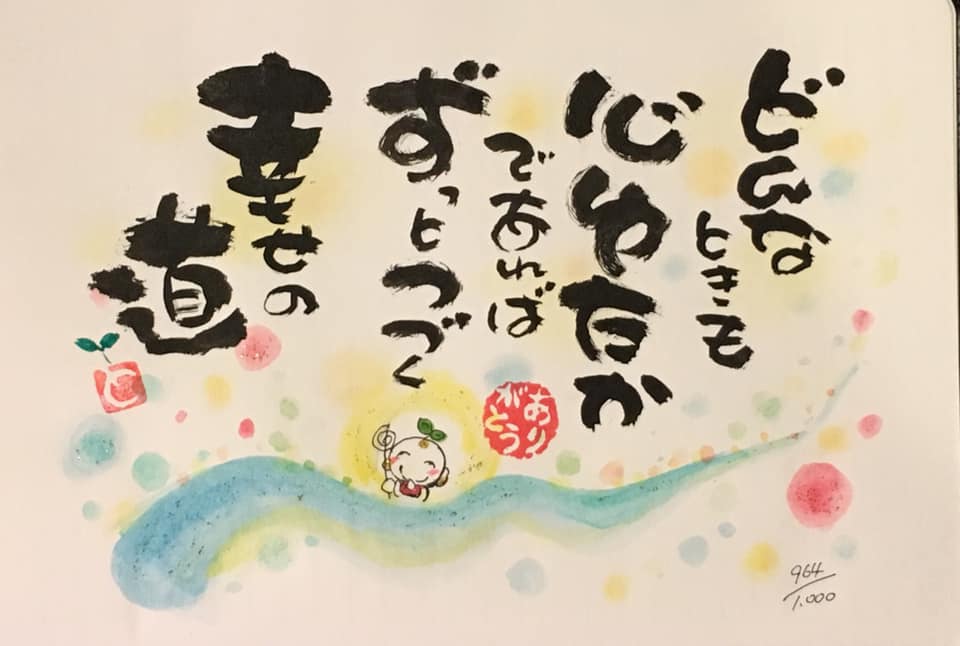 どんな
ときも
心ゆたか
であれば
ずっとつづく
幸せの
道
ありがとう
964/1.000